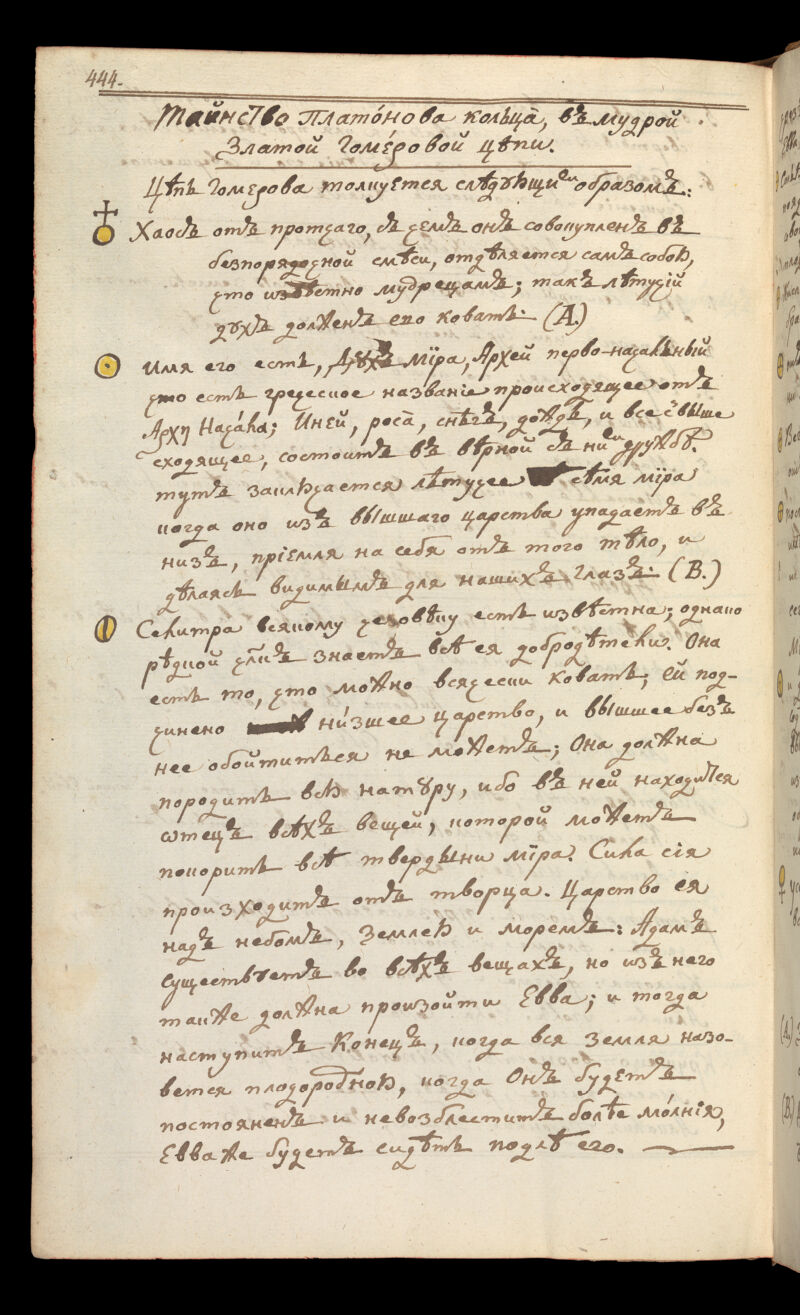 444.
Таинство Платóнова кольца̀, въ мудрой
Златой Гомéровой цѣпи.
Цѣпь Гомерова толкуется слѣдующимъ образомъ:
Хаосъ отъ протчаго, съ чемъ онъ совокупленъ въ
безпорядочной смѣси, отдѣляется самъ собою,
что извѣстно мудрецамъ; такъ лѣтучій
духъ долженъ его ковать. (А.)
Имя его есть, Духъ мїра, Архей перво-начальный
что есть греческое названіе происходящее отъ
Архη Начáла; Иней, роса̀, снѣгъ, дождь, и все свыше
сходящее, состоитъ въ вѣрной съ ними дружбѣ.
тутъ заключается лѣтучее сѣмя мїра
когда оно изъ вышшаго царства упадаетъ въ
низъ, пріемля на себя отъ того тѣло, и
дѣлаясь видимымъ для нашихъ глазъ. (В.)
Селитра всякому человѣку есть извѣстна; однако
рѣдкой кто знаетъ всѣ ея добродѣтели. Она
есть то, что можно всячески ковать; ей под-
чинено ни́зшее царство, и вышшее безъ
нее обойтиться не можетъ; Она должна
породить всю натуру, ибо въ ней находится
ѡтецъ всѣхъ вещей, которой можетъ
покорить всѣ твердыни мїра. Сила сія
произходитъ отъ творца. Царство ея
надъ небомъ, Землею и моремъ: Адамъ
существуетъ во всѣхъ вещахъ, но изъ него
также должна произойти Евва; и тогда
наступитъ Конецъ, когда вся Земля назо-
вется плодородною, когда Онъ будетъ
постояненъ и невозблеститъ болѣе мо́лнія,
Евва же будетъ сидѣть подлѣ его.